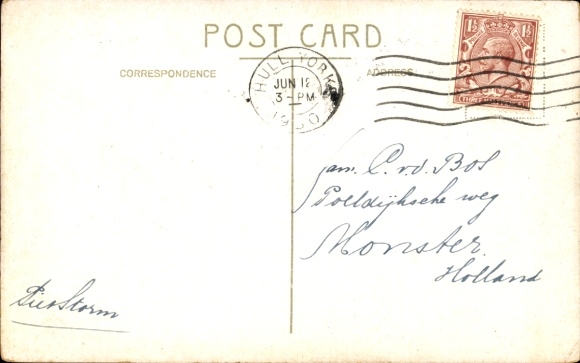 POST CARD
CORRESPONDENCE
ADDRESS
HULL YORKS
JUN 12
3 - PM
1930
1½ 1½
THREE HALFPENCE
Fam. C. v. d. Bos
Poeldijksche weg
Monster
Holland
Piet Storm